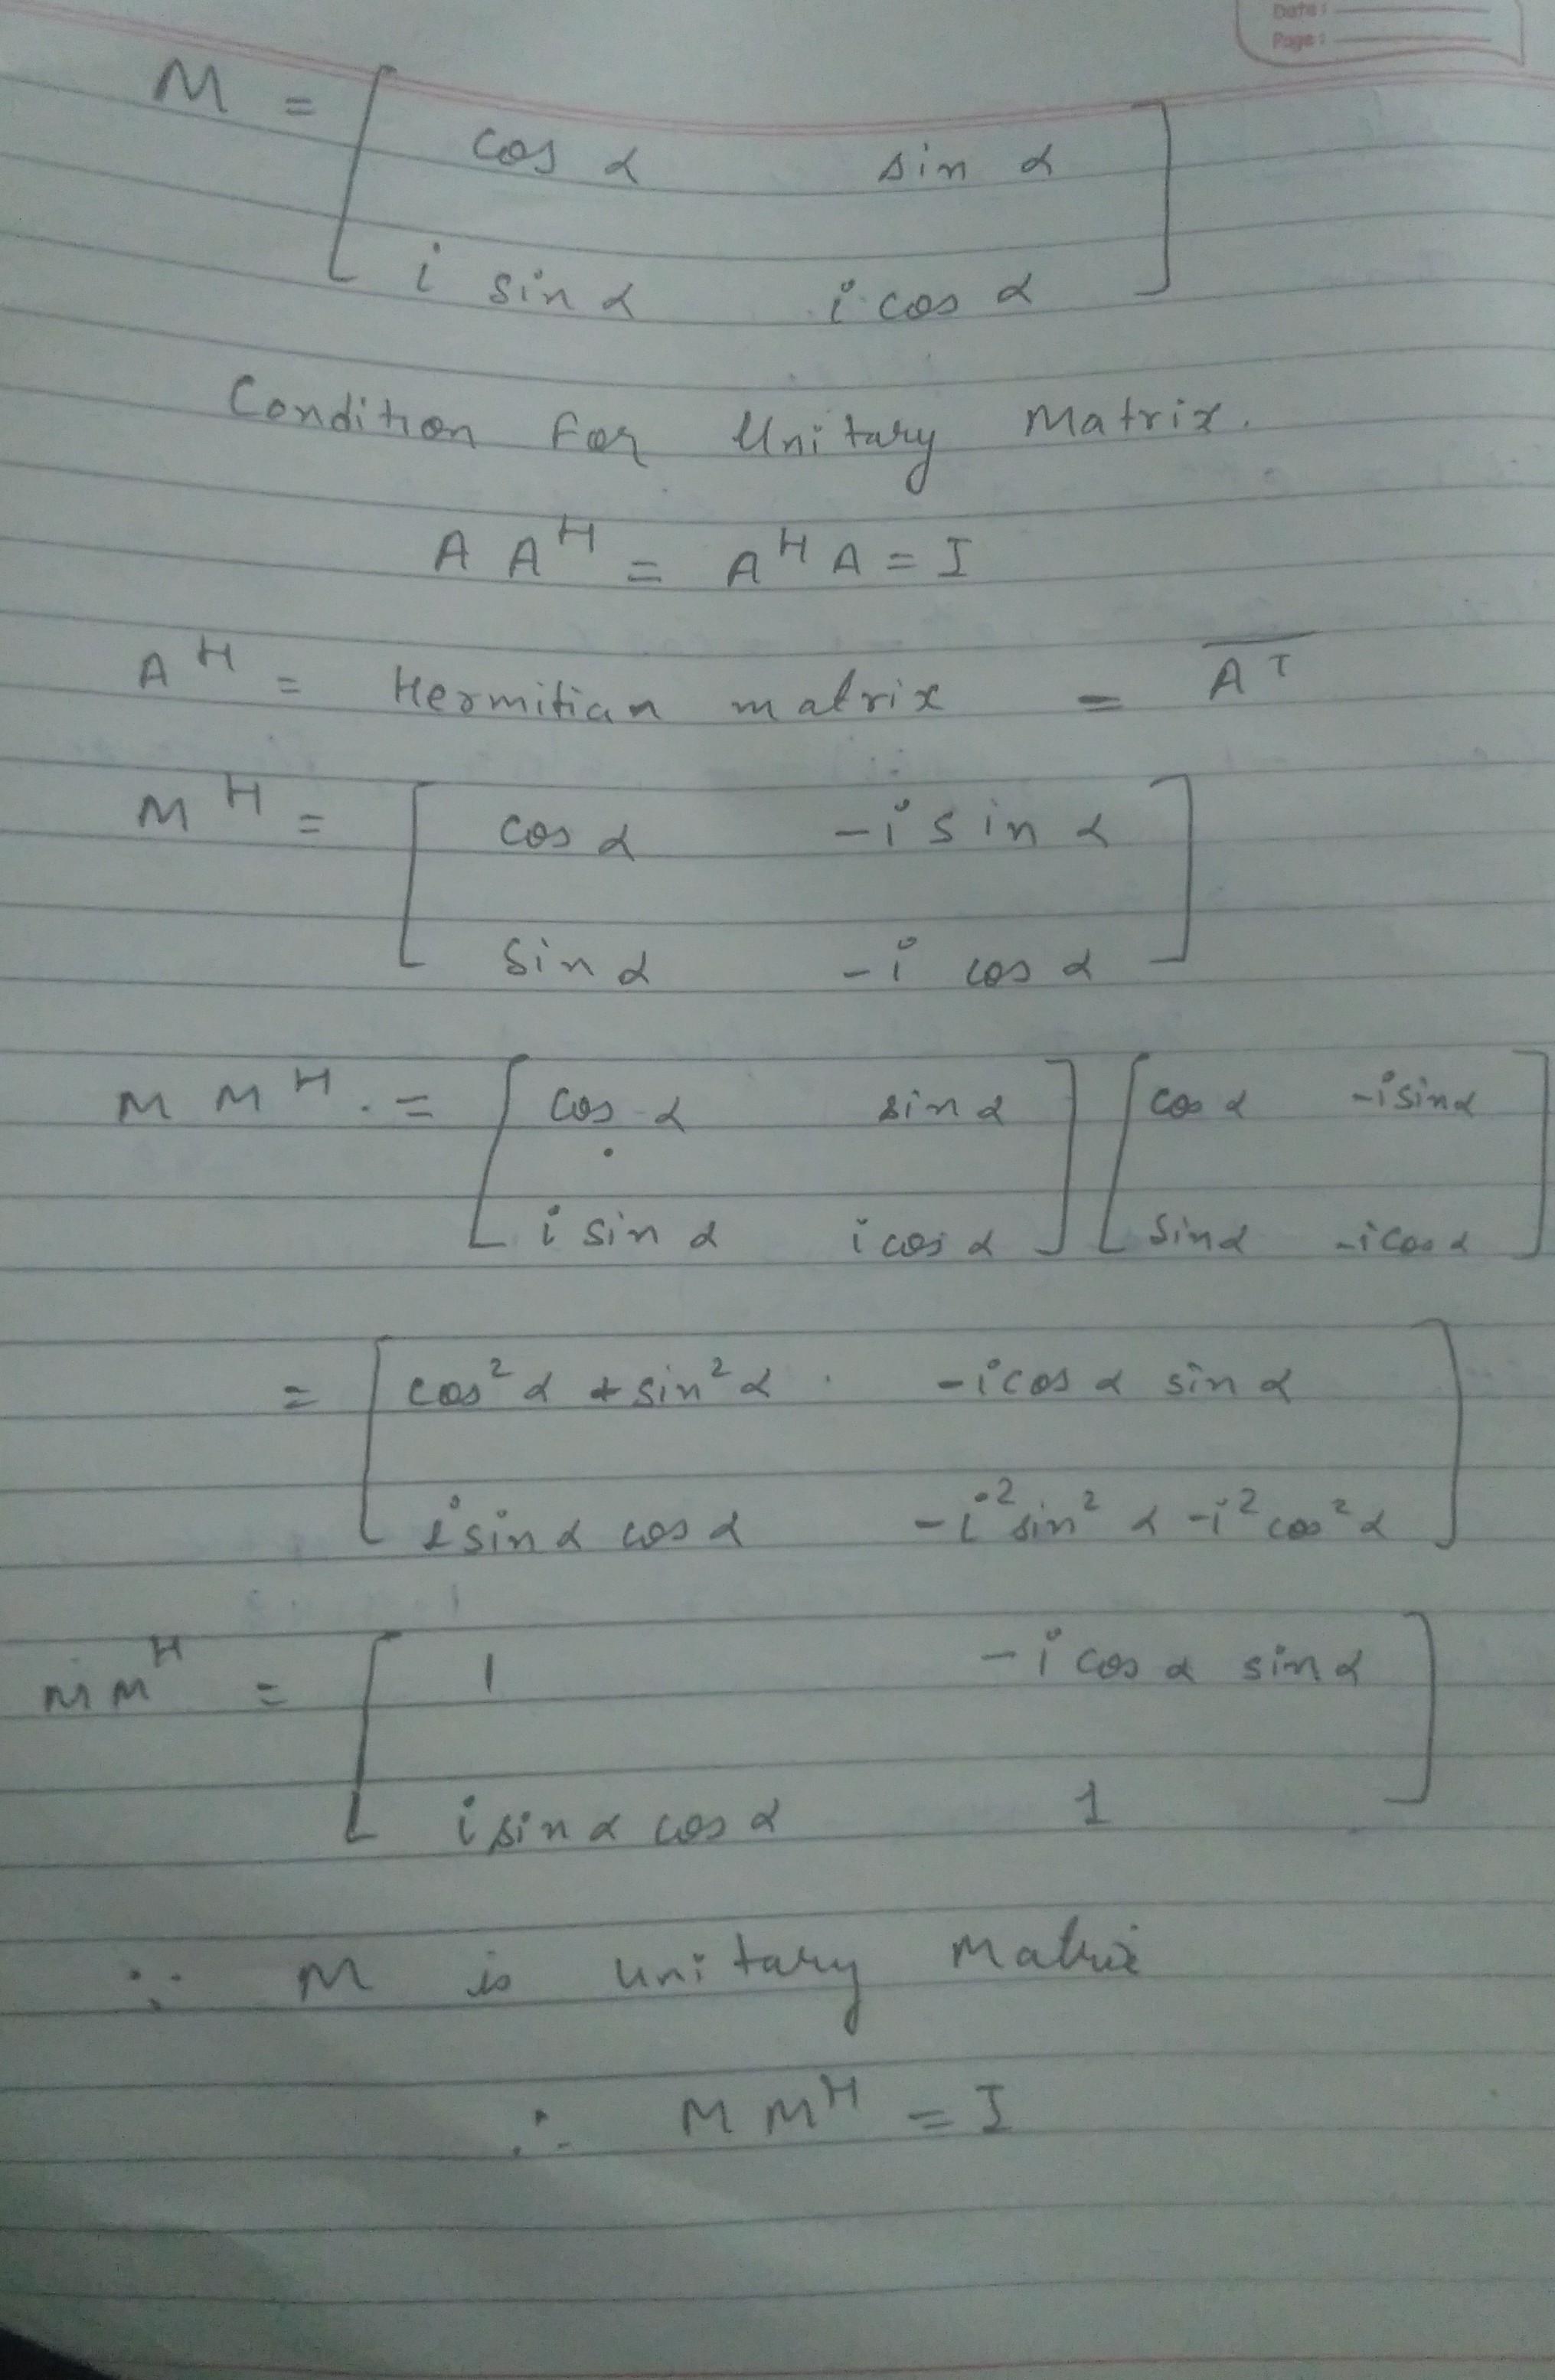 Date:
Page:
M = [ cos α sin α
i sin α i cos α ]
Condition For Unitary Matrix.
A Aᴴ = Aᴴ A = I
Aᴴ = Hermitian matrix = \overline{Aᵀ}
Mᴴ = [ cos α -i sin α
sin α -i cos α ]
M Mᴴ . = [ cos α sin α ] [ cos α -i sin α
i sin α i cos α ] [ sin α -i cos α ]
= [ cos² α + sin² α -i cos α sin α
i sin α cos α -i² sin² α - i² cos² α ]
M Mᴴ = [ 1 -i cos α sin α
i sin α cos α 1 ]
∵ M is unitary Matrix
∴ M Mᴴ = I